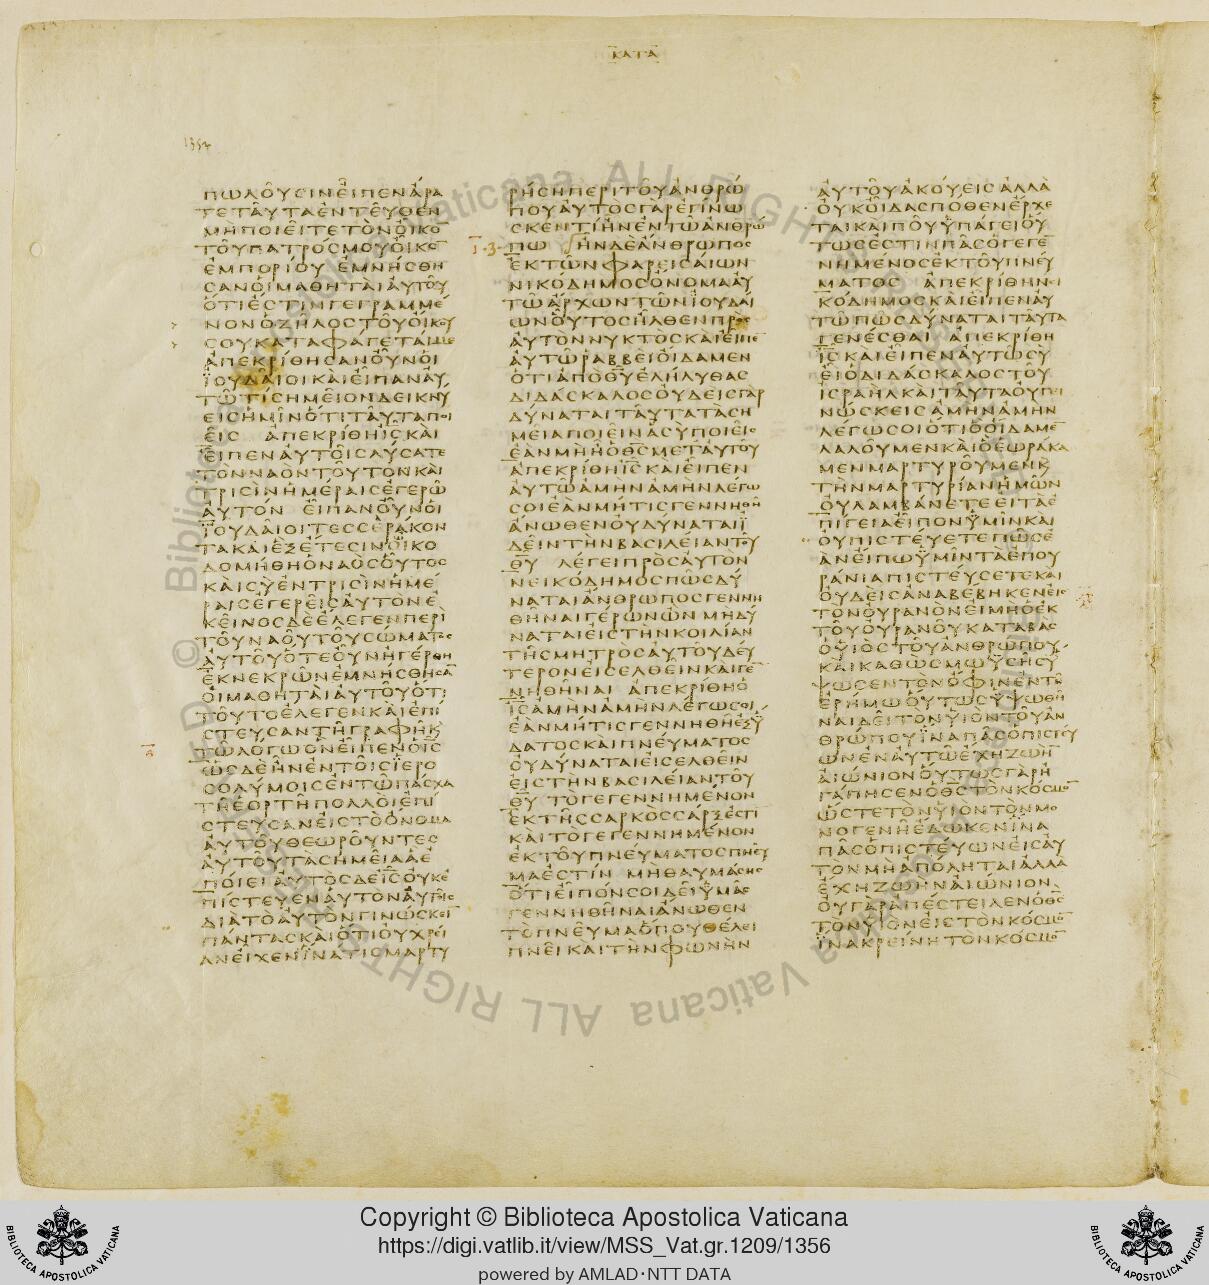 ΚΑΤΑ
1357
ΠΩΛΟΥΣΙΝΕΙΠΕΝΑΡΑ
ΤΕΤΑΥΤΑΕΝΤΕΥΘΕΝ
ΜΗΠΟΙΕΙΤΕΤΟΝΟΙΚΟ̅
ΤΟΥΠΑΤΡΟΣΜΟΥΟΙΚΟ̅
ΕΜΠΟΡΙΟΥ ΕΜΝΗΣΘΗ
ΣΑΝΟΙΜΑΘΗΤΑΙΑΥΤΟΥ
ΟΤΙΕΣΤΙΝΓΕΓΡΑΜΜΕ
ΝΟΝΟΖΗΛΟΣΤΟΥΟΙΚΟΥ
ΣΟΥΚΑΤΑΦΑΓΕΤΑΙΜΕ
ΑΠΕΚΡΙΘΗΣΑΝΟΥΝΟΙ
ΪΟΥΔΑΙΟΙΚΑΙΕΙΠΑΝΑΥ
ΤΩΤΙΣΗΜΕΙΟΝΔΕΙΚΝΥ
ΕΙΣΗΜΙΝΟΤΙΤΑΥΤΑΠΟΙ
ΕΙΣ ΑΠΕΚΡΙΘΗΙΣ̅ΚΑΙ
ΕΙΠΕΝΑΥΤΟΙΣΛΥΣΑΤΕ
ΤΟΝΝΑΟΝΤΟΥΤΟΝΚΑΙ
ΤΡΙΣΙΝΗΜΕΡΑΙΣΕΓΕΡΩ
ΑΥΤΟΝ ΕΙΠΑΝΟΥΝΟΙ
ΪΟΥΔΑΙΟΙΤΕΣΣΕΡΑΚΟΝ
ΤΑΚΑΙΕΞΕΤΕΣΙΝΟΙΚΟ
ΔΟΜΗΘΗΟΝΑΟΣΟΥΤΟΣ
ΚΑΙΣΥΕΝΤΡΙΣΙΝΗΜΕ
ΡΑΙΣΕΓΕΡΕΙΣΑΥΤΟΝΕ
ΚΕΙΝΟΣΔΕΕΛΕΓΕΝΠΕΡΙ
ΤΟΥΝΑΟΥΤΟΥΣΩΜΑΤΟΣ
ΑΥΤΟΥΟΤΕΟΥΝΗΓΕΡΘΗ
ΕΚΝΕΚΡΩΝΕΜΝΗΣΘΗΣΑ̅
ΟΙΜΑΘΗΤΑΙΑΥΤΟΥΟΤΙ
ΤΟΥΤΟΕΛΕΓΕΝΚΑΙΕΠΙ
ΣΤΕΥΣΑΝΤΗΓΡΑΦΗΚ
ΤΩΛΟΓΩΟΝΕΙΠΕΝΟΙΣ̅
ΩΣΔΕΗΝΕΝΤΟΙΣΪΕΡΟ
ΣΟΛΥΜΟΙΣΕΝΤΩΠΑΣΧΑ
ΤΗΕΟΡΤΗΠΟΛΛΟΙΕΠΙ
ΣΤΕΥΣΑΝΕΙΣΤΟΟΝΟΜΑ
ΑΥΤΟΥΘΕΩΡΟΥΝΤΕΣ
ΑΥΤΟΥΤΑΣΗΜΕΙΑΑΕ
ΠΟΙΕΙΑΥΤΟΣΔΕΙΣ̅ΟΥΚΕ
ΠΙΣΤΕΥΕΝΑΥΤΟΝΑΥΤΟΙΣ
ΔΙΑΤΟΑΥΤΟΝΓΙΝΩΣΚΕΙ̅
ΠΑΝΤΑΣΚΑΙΟΤΙΟΥΧΡΕΙ
ΑΝΕΙΧΕΝΪΝΑΤΙΣΜΑΡΤΥ
ΡΗΣΗΠΕΡΙΤΟΥΑΝΘΡΩ
ΠΟΥΑΥΤΟΣΓΑΡΕΓΙΝΩ
ΣΚΕΝΤΙΗΝΕΝΤΩΑΝΘΡΩ
ΠΩ ΗΝΔΕΑΝΘΡΩΠΟΣ
ΕΚΤΩΝΦΑΡΕΙΣΑΙΩΝ
ΝΙΚΟΔΗΜΟΣΟΝΟΜΑΑΥ
ΤΩΑΡΧΩΝΤΩΝΪΟΥΔΑΙ
ΩΝΟΥΤΟΣΗΛΘΕΝΠΡΟΣ
ΑΥΤΟΝΝΥΚΤΟΣΚΑΙΕΙΠΕ
ΑΥΤΩΡΑΒΒΕΙΟΙΔΑΜΕΝ
ΟΤΙΑΠΟΘΥ̅ΕΛΗΛΥΘΑΣ
ΔΙΔΑΣΚΑΛΟΣΟΥΔΕΙΣΓΑΡ
ΔΥΝΑΤΑΙΤΑΥΤΑΤΑΣΗ
ΜΕΙΑΠΟΙΕΙΝΑΣΥΠΟΙΕΙΣ
ΕΑΝΜΗΗΟΘΣ̅ΜΕΤΑΥΤΟΥ
ΑΠΕΚΡΙΘΗΙΣ̅ΚΑΙΕΙΠΕΝ
ΑΥΤΩΑΜΗΝΑΜΗΝΛΕΓΩ
ΣΟΙΕΑΝΜΗΤΙΣΓΕΝΝΗΘΗ
ΑΝΩΘΕΝΟΥΔΥΝΑΤΑΙΪ
ΔΕΙΝΤΗΝΒΑΣΙΛΕΙΑΝΤΟΥ
ΘΥ̅ ΛΕΓΕΙΠΡΟΣΑΥΤΟΝ
ΝΕΙΚΟΔΗΜΟΣΠΩΣΔΥ
ΝΑΤΑΙΑΝΘΡΩΠΟΣΓΕΝΝΗ
ΘΗΝΑΙΓΕΡΩΝΩΝ ΜΗΔΥ
ΝΑΤΑΙΕΙΣΤΗΝΚΟΙΛΙΑΝ
ΤΗΣΜΗΤΡΟΣΑΥΤΟΥΔΕΥ
ΤΕΡΟΝΕΙΣΕΛΘΕΙΝΚΑΙΓΕ̅
ΝΗΘΗΝΑΙ ΑΠΕΚΡΙΘΗΟ
ΙΣ̅ΑΜΗΝΑΜΗΝΛΕΓΩΣΟΙ
ΕΑΝΜΗΤΙΣΓΕΝΝΗΘΗΕΞΫ
ΔΑΤΟΣΚΑΙΠΝΕΥΜΑΤΟΣ
ΟΥΔΥΝΑΤΑΙΕΙΣΕΛΘΕΙΝ
ΕΙΣΤΗΝΒΑΣΙΛΕΙΑΝΤΟΥ
ΘΥ̅ ΤΟΓΕΓΕΝΝΗΜΕΝΟΝ
ΕΚΤΗΣΣΑΡΚΟΣΣΑΡΞΕΣΤΙ
ΚΑΙΤΟΓΕΓΕΝΝΗΜΕΝΟΝ
ΕΚΤΟΥΠΝΕΥΜΑΤΟΣΠΝΕΥ
ΜΑΕΣΤΙΝ ΜΗΘΑΥΜΑΣΗΣ
ΟΤΙΕΙΠΟΝΣΟΙΔΕΙΫΜΑΣ
ΓΕΝΝΗΘΗΝΑΙΑΝΩΘΕΝ
ΤΟΠΝΕΥΜΑΟΠΟΥΘΕΛΕΙ
ΠΝΕΙΚΑΙΤΗΝΦΩΝΗΝ
ΑΥΤΟΥΑΚΟΥΕΙΣΑΛΛΑ
ΟΥΚΟΙΔΑΣΠΟΘΕΝΕΡΧΕ
ΤΑΙΚΑΙΠΟΥΫΠΑΓΕΙΟΥ
ΤΩΣΕΣΤΙΝΠΑΣΟΓΕΓΕ̅
ΝΗΜΕΝΟΣΕΚΤΟΥΠΝΕΥ
ΜΑΤΟΣ ΑΠΕΚΡΙΘΗΝΙ
ΚΟΔΗΜΟΣΚΑΙΕΙΠΕΝΑΥ
ΤΩΠΩΣΔΥΝΑΤΑΙΤΑΥΤΑ
ΓΕΝΕΣΘΑΙ ΑΠΕΚΡΙΘΗ
ΙΣ̅ΚΑΙΕΙΠΕΝΑΥΤΩΣΥ
ΕΙΟΔΙΔΑΣΚΑΛΟΣΤΟΥ
ΙΣΡΑΗΛΚΑΙΤΑΥΤΑΟΥΓΕΙ
ΝΩΣΚΕΙΣΑΜΗΝΑΜΗΝ
ΛΕΓΩΣΟΙΟΤΙΟΟΙΔΑΜΕ̅
ΛΑΛΟΥΜΕΝΚΑΙΟΕΩΡΑΚΑ
ΜΕΝΜΑΡΤΥΡΟΥΜΕΝΚ
ΤΗΝΜΑΡΤΥΡΙΑΝΗΜΩΝ
ΟΥΛΑΜΒΑΝΕΤΕΕΙΤΑΕ
ΠΙΓΕΙΑΕΙΠΟΝΫΜΙΝΚΑΙ
ΟΥΠΙΣΤΕΥΕΤΕΠΩΣΕ
ΑΝΕΙΠΩΫΜΙΝΤΑΕΠΟΥ
ΡΑΝΙΑΠΙΣΤΕΥΣΕΤΕΚΑΙ
ΟΥΔΕΙΣΑΝΑΒΕΒΗΚΕΝΕΙΣ
ΤΟΝΟΥΡΑΝΟΝΕΙΜΗΟΕΚ
ΤΟΥΟΥΡΑΝΟΥΚΑΤΑΒΑΣ
ΟΥΙΟΣΤΟΥΑΝΘΡΩΠΟΥ
ΚΑΙΚΑΘΩΣΜΩΥΣΗΣΥ
ΨΩΣΕΝΤΟΝΟΦΙΝΕΝΤΗ
ΕΡΗΜΩΟΥΤΩΣΥΨΩΘΗ
ΝΑΙΔΕΙΤΟΝΥΙΟΝΤΟΥΑΝ
ΘΡΩΠΟΥΪΝΑΠΑΣΟΠΙΣΤΕΥ
ΩΝΕΝΑΥΤΩΕΧΗΖΩΗ̅
ΑΙΩΝΙΟΝΟΥΤΩΣΓΑΡΗ
ΓΑΠΗΣΕΝΟΘΣ̅ΤΟΝΚΟΣΜΟ̅
ΩΣΤΕΤΟΝΥΙΟΝΤΟΝΜΟ
ΝΟΓΕΝΗΕΔΩΚΕΝΪΝΑ
ΠΑΣΟΠΙΣΤΕΥΩΝΕΙΣΑΥ
ΤΟΝΜΗΑΠΟΛΗΤΑΙΑΛΛΑ
ΕΧΗΖΩΗΝΑΙΩΝΙΟΝ
ΟΥΓΑΡΑΠΕΣΤΕΙΛΕΝΟΘΣ̅
ΤΟΝΥΙΟΝΕΙΣΤΟΝΚΟΣΜΟ̅
ΪΝΑΚΡΕΙΝΗΤΟΝΚΟΣΜΟ̅
Copyright © Biblioteca Apostolica Vaticana
https://digi.vatlib.it/view/MSS_Vat.gr.1209/1356
powered by AMLAD·NTT DATA
BIBLIOTECA APOSTOLICA VATICANA
BIBLIOTECA APOSTOLICA VATICANA